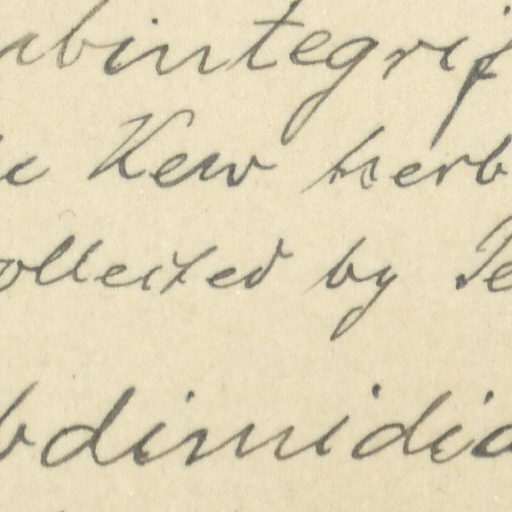 ubintegrif
Kew herb
ollected by Te
bdimidia